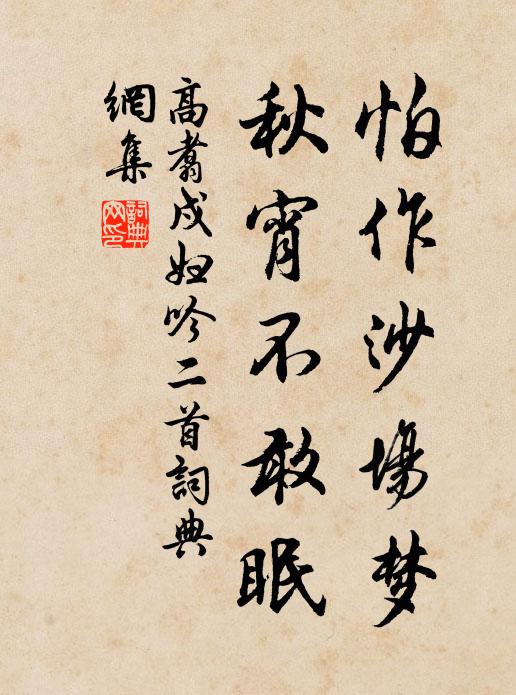 怕作沙場梦
秋宵不敢眠
高翥戍妇吟二首詞典
網集
詞典
网印